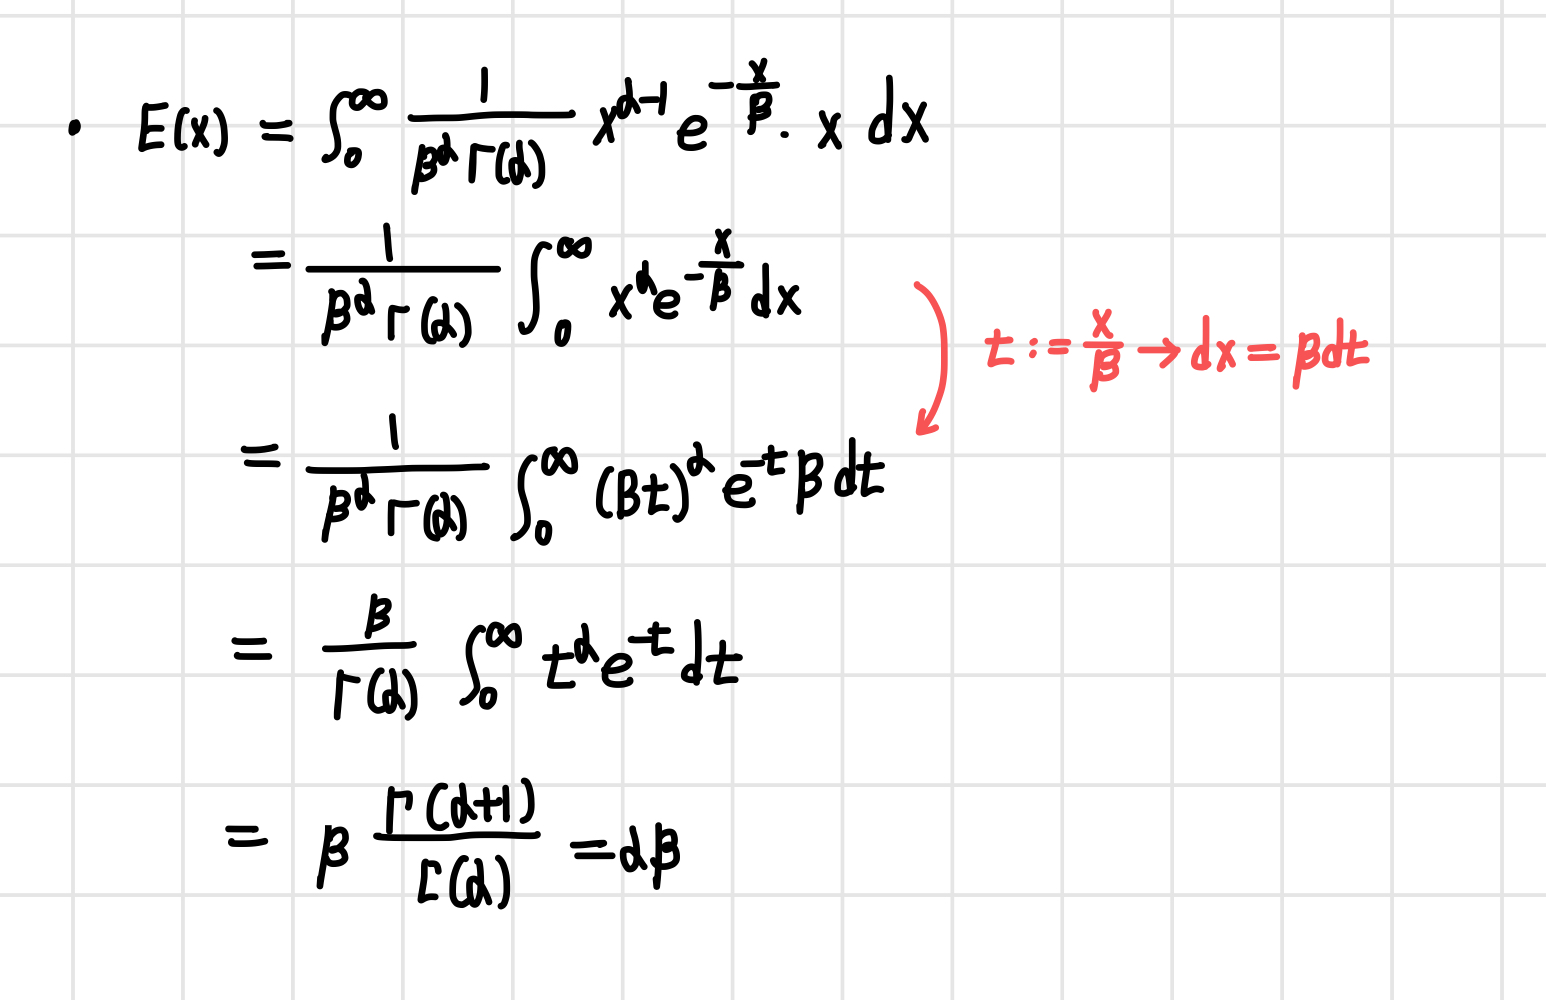 • E(x) = ∫₀^∞ \frac{1}{β^α Γ(α)} x^{α-1} e^{-\frac{x}{β}} · x dx
= \frac{1}{β^α Γ(α)} ∫₀^∞ x^α e^{-\frac{x}{β}} dx
t := \frac{x}{β} → dx = βdt
= \frac{1}{β^α Γ(α)} ∫₀^∞ (βt)^α e^{-t} β dt
= \frac{β}{Γ(α)} ∫₀^∞ t^α e^{-t} dt
= β \frac{Γ(α+1)}{Γ(α)} = αβ